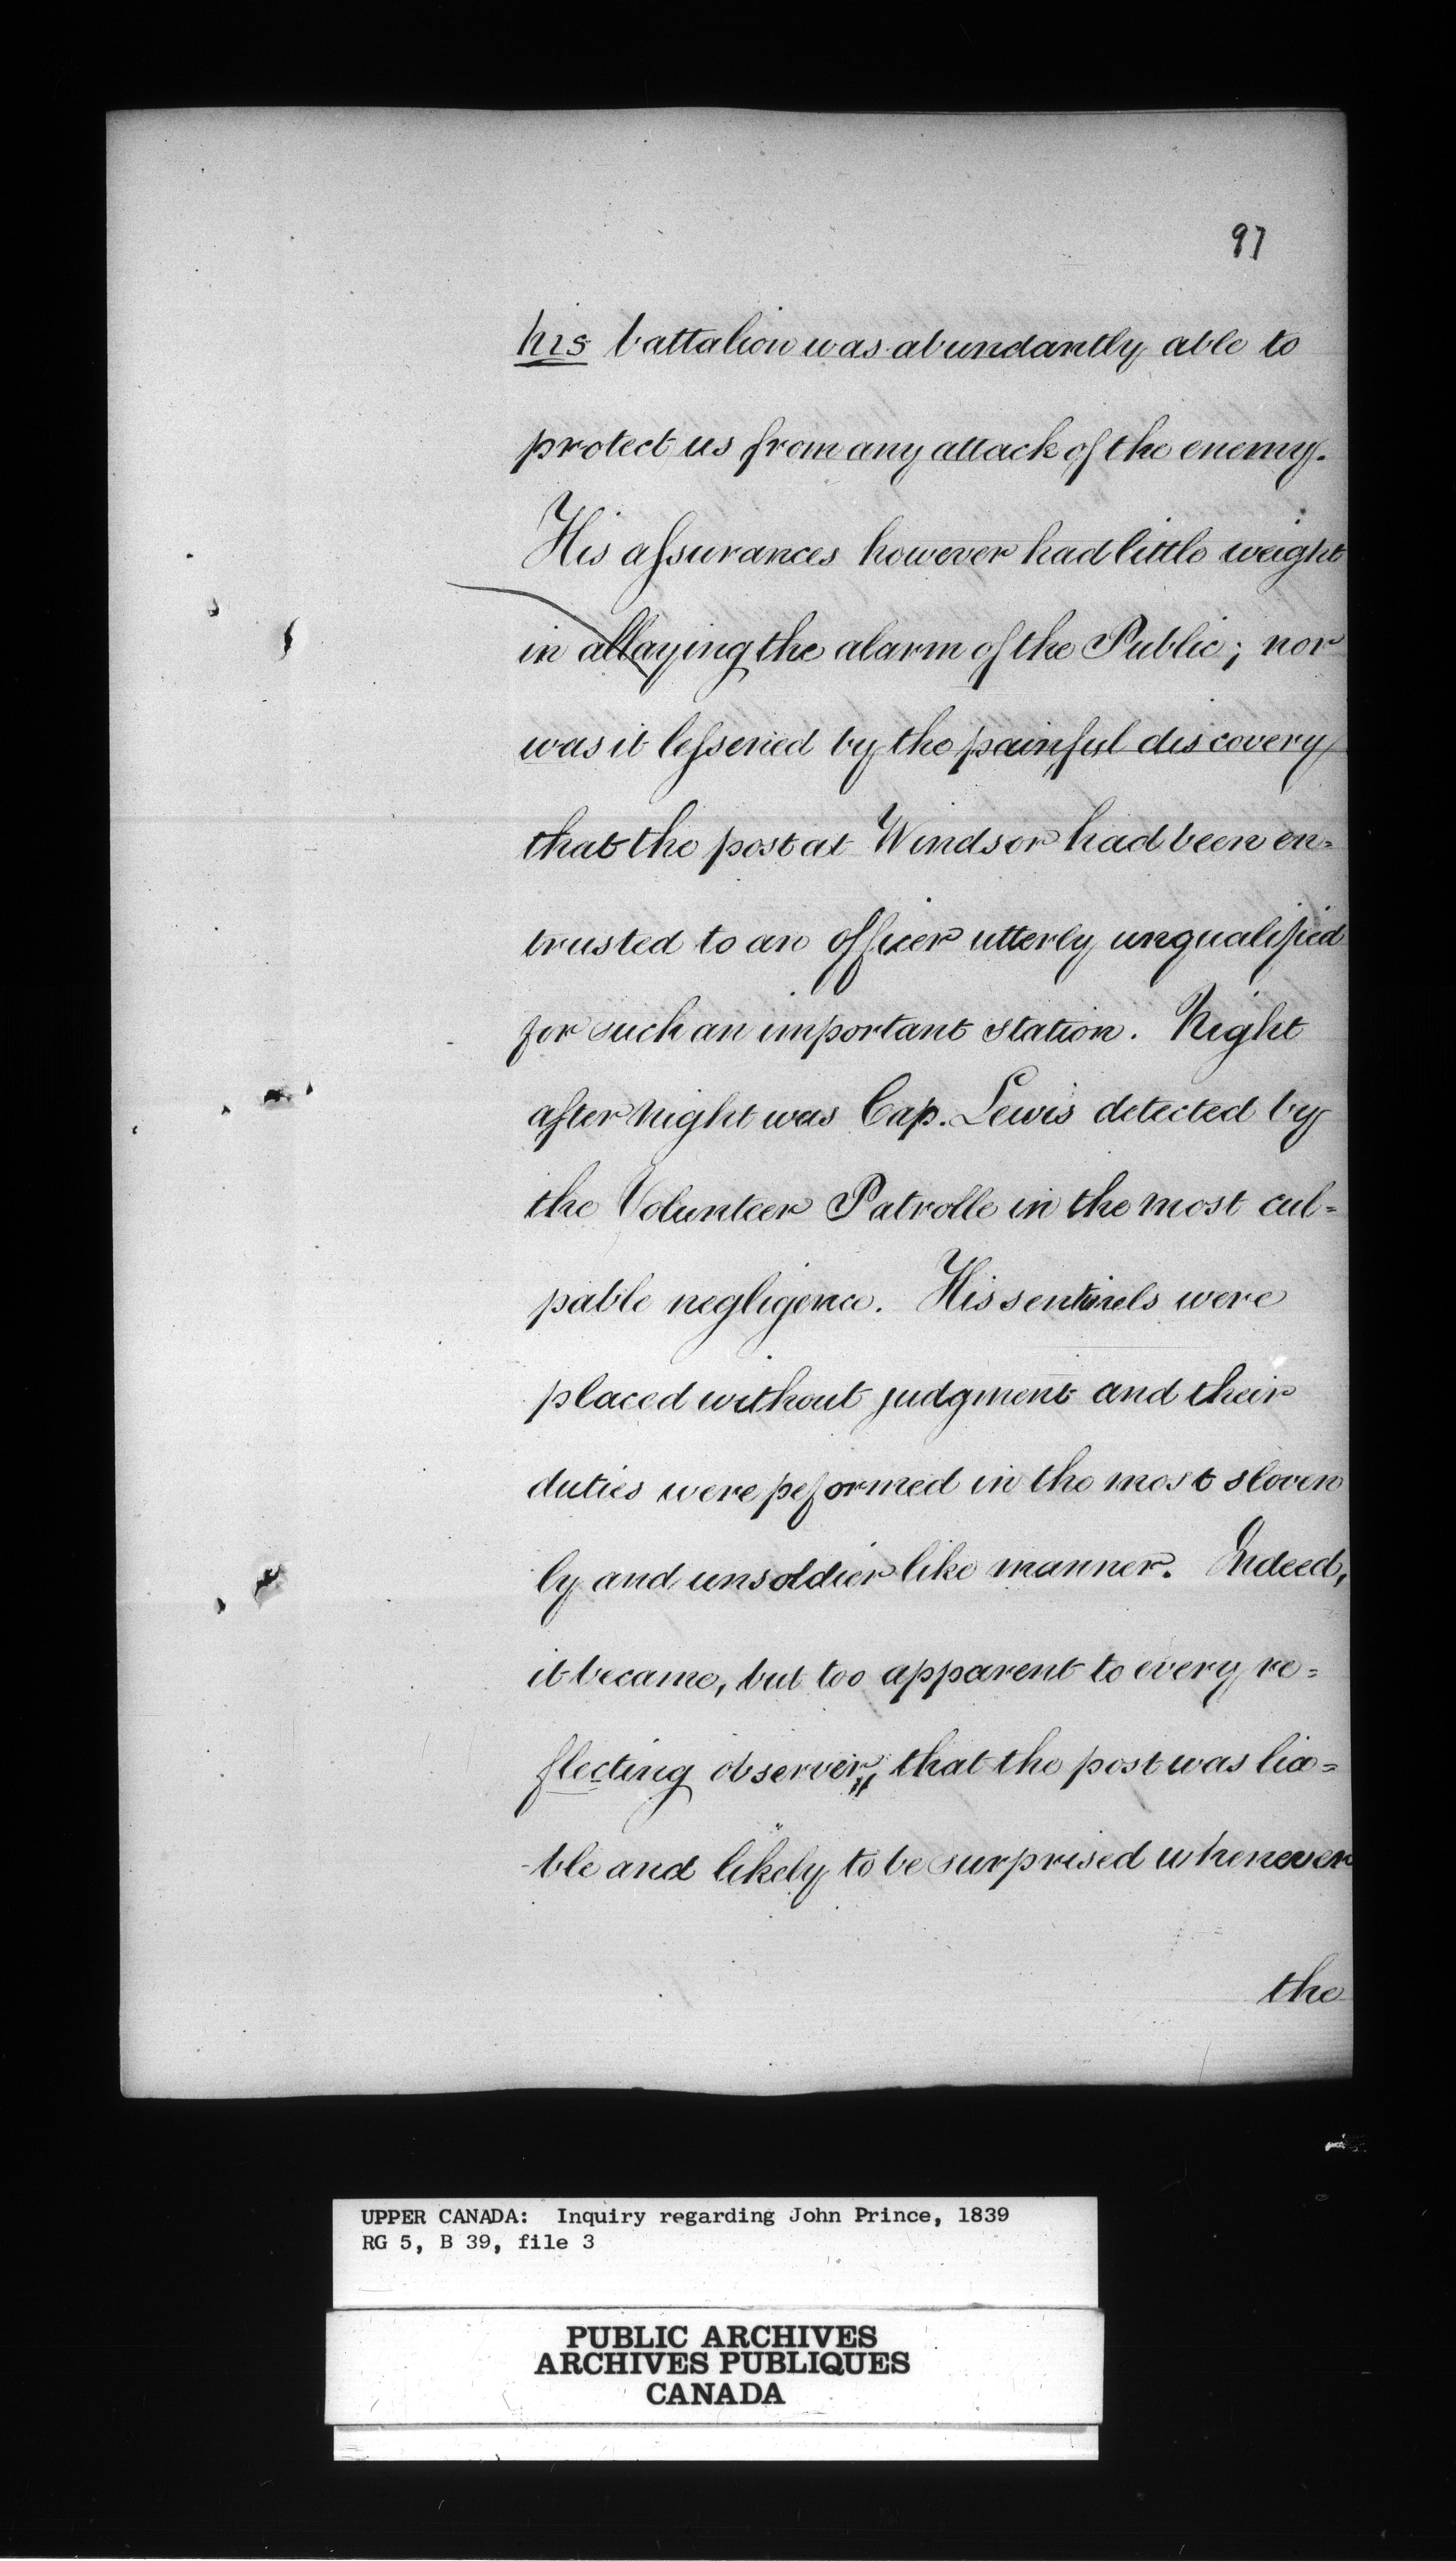 97
his battalion was abundantly able to
protect us from any attack of the enemy.
His assurances however had little weight
in allaying the alarm of the Public; nor
was it lessened by the painful discovery
that the post at Windsor had been en=
trusted to an officer utterly unqualified
for such an important station. Night
after night was Cap. Lewis detected by
the Volunteer Patrolle in the most cul=
pable negligence. His sentinels were
placed without judgment and their
duties were peformed in the most sloven
ly and unsoldier like manner. Indeed,
it became, but too apparent to every re=
flecting observer, that the post was lia=
-ble and likely to be surprised whenever
the
UPPER CANADA: Inquiry regarding John Prince, 1839
RG 5, B 39, file 3
PUBLIC ARCHIVES
ARCHIVES PUBLIQUES
CANADA